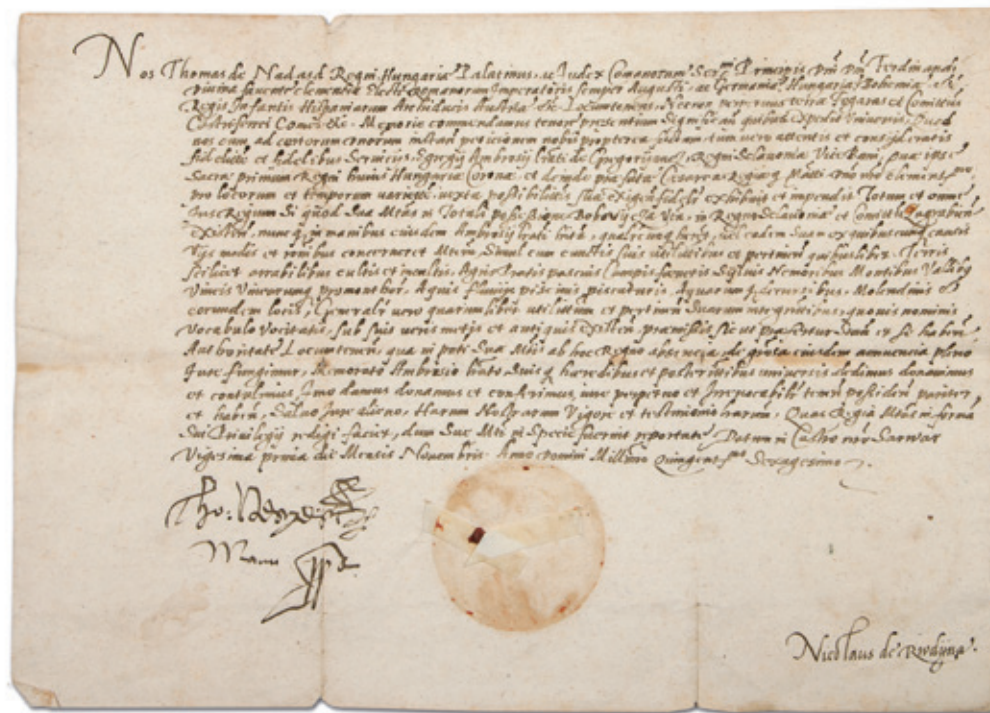 Nos Thomas de Nadasd Regni Hungariæ Palatinus, ac Iudex Comanorum Ser.mi Principis Dñi Dñi Ferdinandi
divina favente clementia Electi Romanorum Imperatoris semper Augusti, ac Germaniæ Hungariæ Bohemiæ &c
Regis Infantis Hispaniarum Archiducis Austriæ &c. Locumtenens, Necnon perpetuus terræ Fogaras et Comitatus
Castriferrei Comes &c. Memorie commendamus tenore presentium Significan quibus expedit Universis, Quod
nos cum ad certorum instan peticionem nobis propterea tum vero attentis et consideratis
fidelitate et fidelibus Servicijs, Egregij Ambrosij de Gregorijancz Regni Sclavoniæ Vice Bani, quæ ipse
Sacræ primum Regni huius Hungariæ Coronæ, et deinde præfatæ Cesareæ Regiæq Matti Dño nro clementmo
pro locorum et temporum varietate, iuxta possibilitatis suæ exigen fideliter exhibuit et impendit Totum et omne
Jus Regium Si quod Sua Mtas in Totali possessione in Regno Sclavoniæ et Comitatu Zagrabien
Existen, nuncq in manibus eiusdem Ambrosij habi qualitercunq haberet, vel eadem Suam ex quibuscunq causis
vijs modis et rõnibus concerneret Mtem, Simul cum cunctis suis utilitatibus et pertinen quibuslibet, Terris
scilicet arabilibus cultis et incultis, Agris Pratis pascuis Campis fœnetis Sylvis Nemoribus Montibus Vallibq
Vineis Vinearumq promonthor, Aquis fluvijs piscinis piscaturis, Aquarumq decursibus, Molendinis et
eorundem locis, Generaliter vero quarumlibet utilitatum et pertinen Suarum integritatibus, quovis nominis
vocabulo vocitatis, sub suis veris metis et antiquis existen, præmissis sicut præfertur Stan et se haben
Authoritate Locumtenen, qua in præsenti Suæ Mtis ab hoc Regno absencia, de gratia eiusdem annuencia pleno
Jure fungimur, Memorato Ambrosio Suisq hæredibus et posteritatibus universis dedimus donavimus
et contulimus, Imo damus donamus et conferimus, iure perpetuo et Irrevocabiliter tenen possiden pariter
et haben, Salvo Jure alieno, Harum Nostrarum Vigore et testimonio Quas Regia Mtas in formam
Sui Privilegij redigi faciet, dum Suæ Mti in Specie fuerint reportatæ Datum in Castro nro Sarwar
Vigesima prima die Mensis Novembris Anno Domini Millmo Quingenmo Sexagesimo
Tho: Nadasd
Manu
Nicolaus de